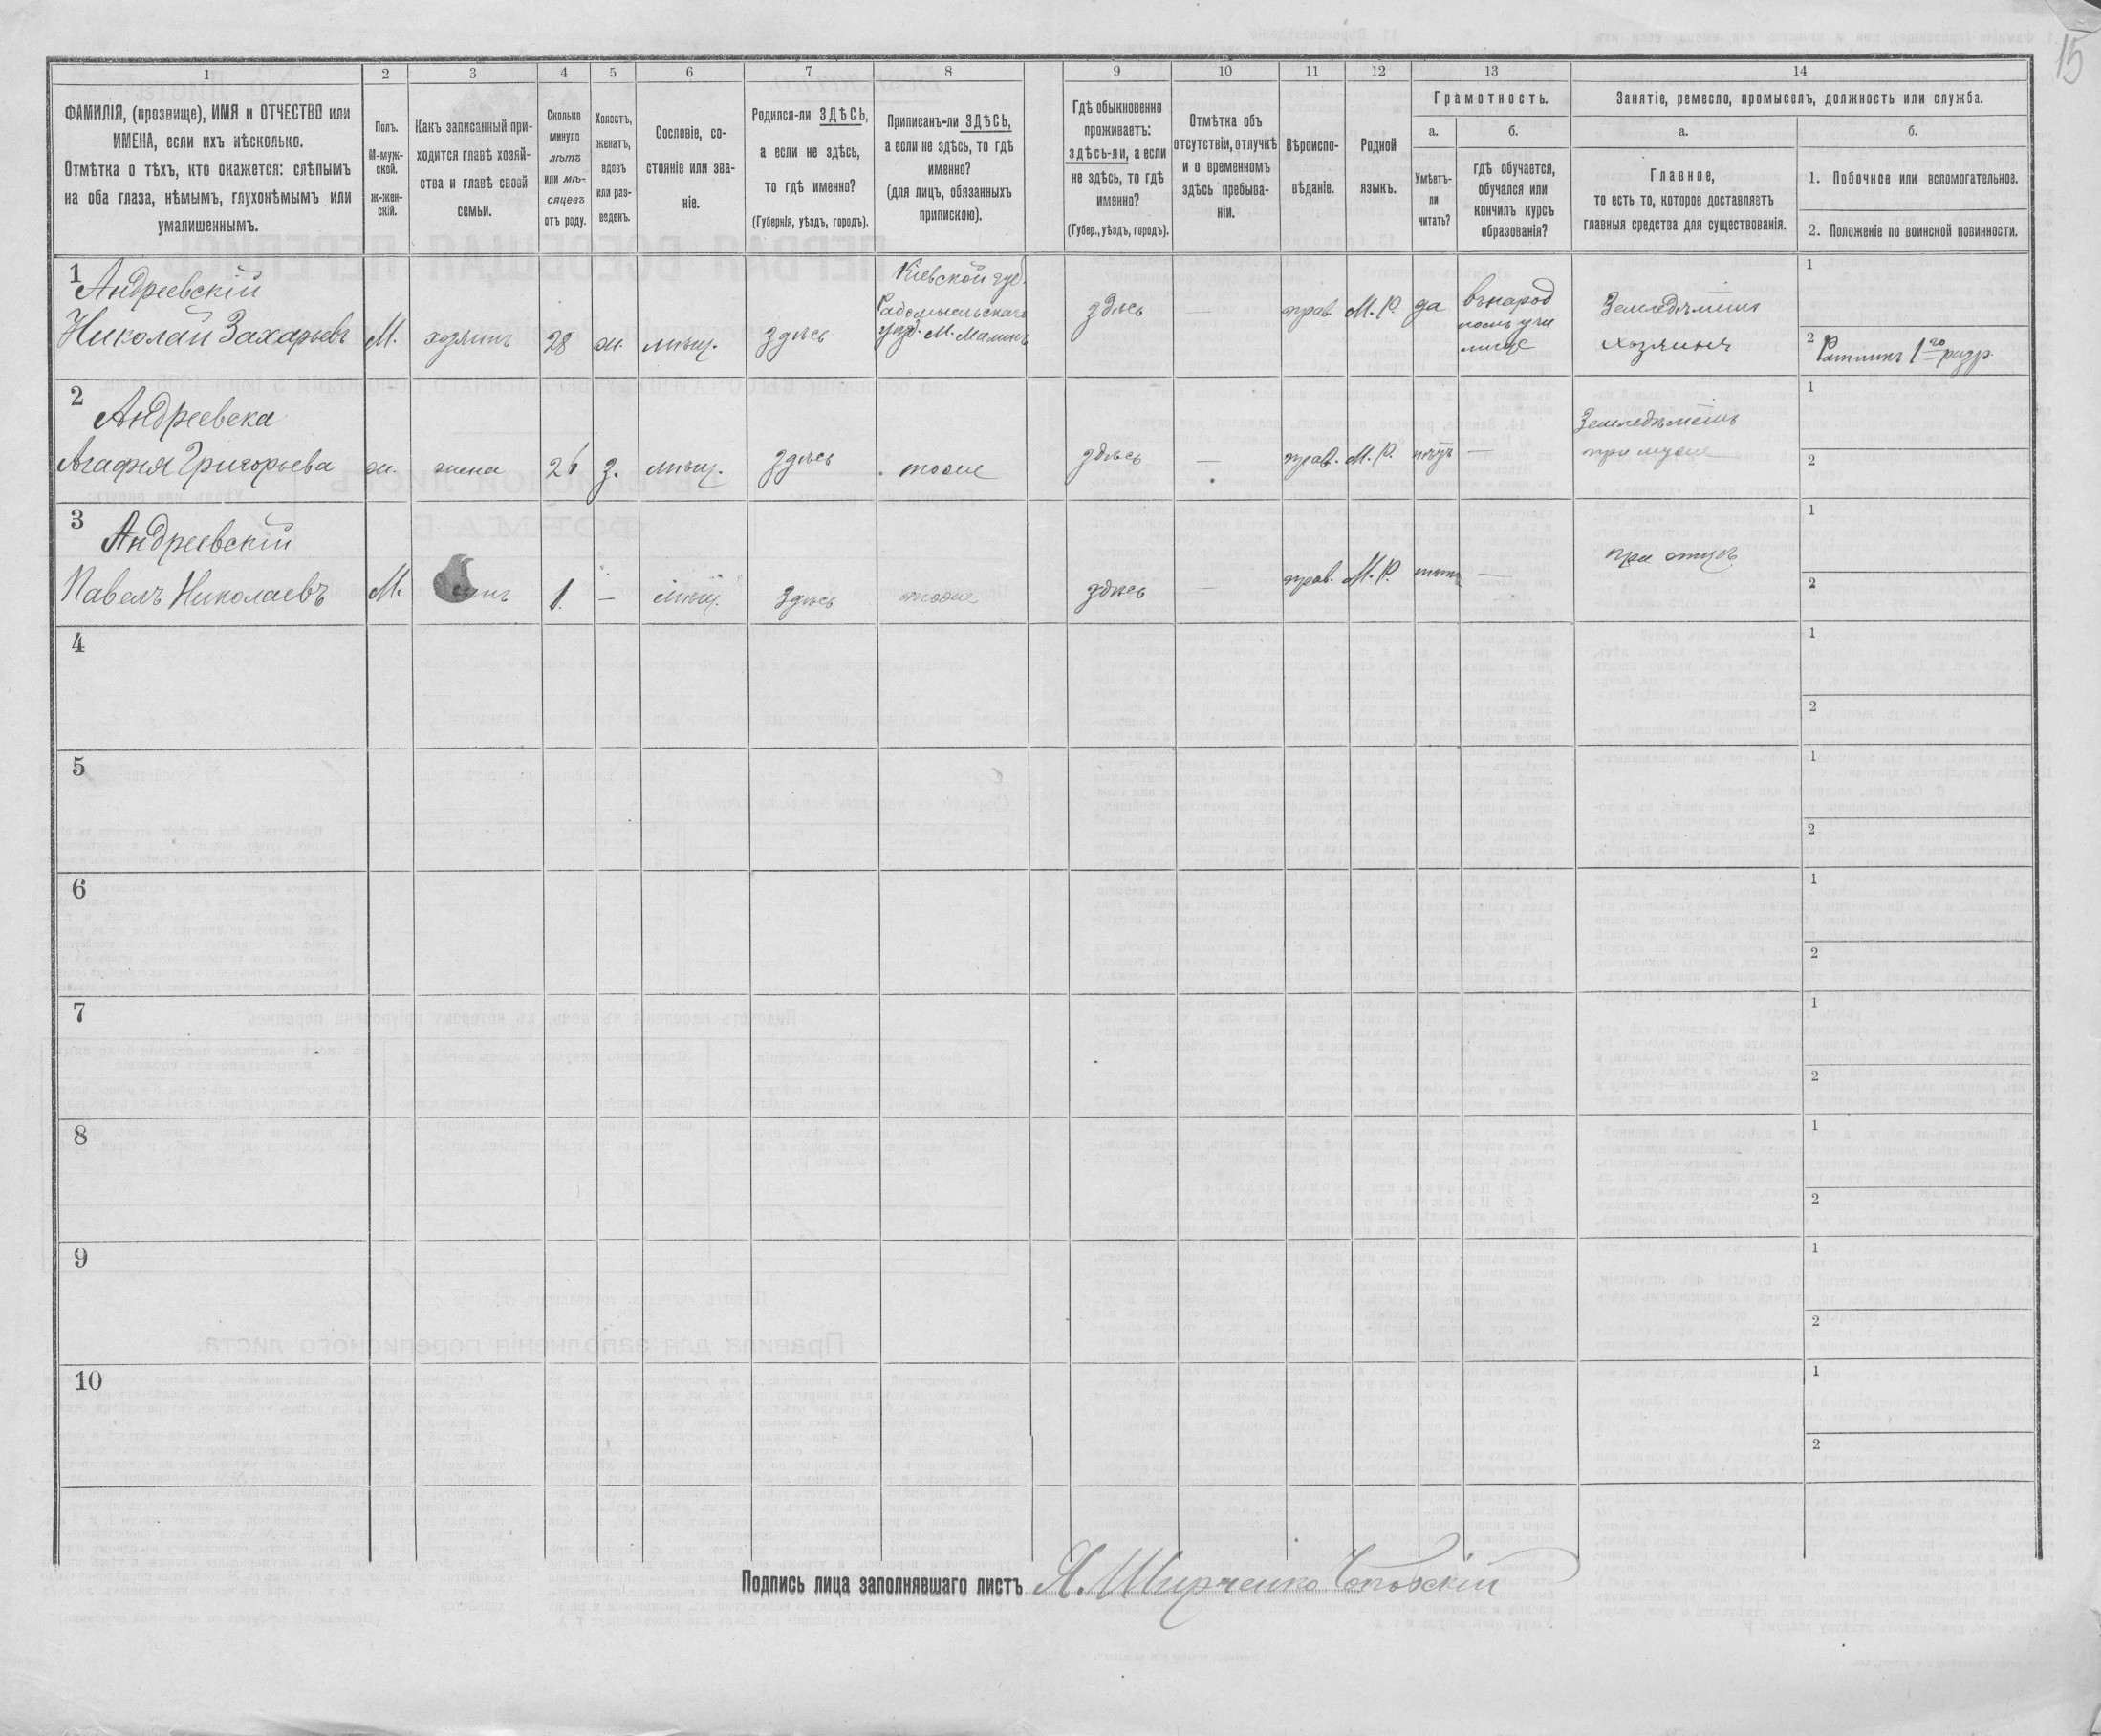 15
1 2 3 4 5 6 7 8 9 10 11 12 13 14
ФАМИЛІЯ, (прозвище), ИМЯ и ОТЧЕСТВО или
ИМЕНА, если ихъ нѣсколько.
Отмѣтка о тѣхъ, кто окажется: слѣпымъ
на оба глаза, нѣмымъ, глухонѣмымъ или
умалишеннымъ.
Полъ.
М-муж-
ской.
ж-жен-
скій.
Какъ записанный при-
ходится главѣ хозяй-
ства и главѣ своей
семьи.
Сколько
минуло
лѣтъ
или мѣ-
сяцевъ
отъ роду.
Холостъ,
женатъ,
вдовъ
или раз-
веденъ.
Сословіе, со-
стояніе или зва-
ніе.
Родился-ли ЗДѢСЬ,
а если не здѣсь,
то гдѣ именно?
(Губернія, уѣздъ, городъ).
Приписанъ-ли ЗДѢСЬ,
а если не здѣсь, то гдѣ
именно?
(для лицъ, обязанныхъ
припискою).
Гдѣ обыкновенно
проживаетъ:
здѣсь-ли, а если
не здѣсь, то гдѣ
именно?
(Губер., уѣздъ, городъ).
Отмѣтка объ
отсутствіи, отлучкѣ
и о временномъ
здѣсь пребыва-
ніи.
Вѣроиспо-
вѣданіе.
Родной
языкъ.
Грамотность.
а.
Умѣетъ-
ли
читать?
б.
гдѣ обучается,
обучался или
кончилъ курсъ
образованія?
Занятіе, ремесло, промыселъ, должность или служба.
а.
Главное,
то есть то, которое доставляетъ
главныя средства для существованія.
б.
1. Побочное или вспомогательное.
2. Положеніе по воинской повинности.
1
Андреевскій
Николай Захарьевъ
М.
хозяинъ
28
ж.
мѣщ.
здѣсь
Кіевской губ.
Радомысльскаго
уѣзд. М. Малинъ
здѣсь
—
прав.
М. Р.
да
въ народ
номъ учи
лищѣ
Земледѣлецъ
хозяинъ
1
2 Ратникъ 1го разр.
2
Андреевска
Агафія Григорьева
ж.
жена
26
з.
мѣщ.
здѣсь
тоже
здѣсь
—
прав.
М. Р.
нѣтъ
—
при мужѣ
1
2
3
Андреевскій
Павелъ Николаевъ
М.
сынъ
1.
—
мѣщ.
Здѣсь
тоже
здѣсь
—
прав.
М. Р.
нѣтъ
—
при отцѣ
1
2
4
1
2
5
1
2
6
1
2
7
1
2
8
1
2
9
1
2
10
1
2
Подпись лица заполнявшаго листъ